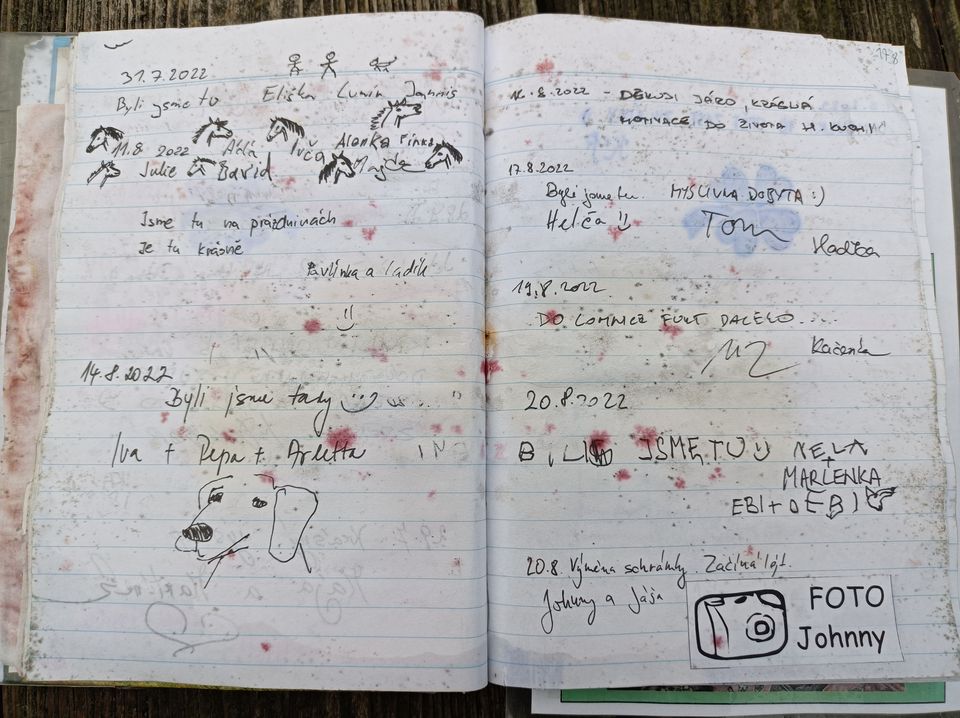 31.7.2022
Byli jsme tu Eliška Lumír Jannis
11.8 2022 Áďa Ivča Alenka Finka
Julie David Magda
Jsme tu na prázdninách
Je tu krásně
Pavlínka a Ladík
14.8.2022
Byli jsme tady
Iva + Pepa + Arletta
178
16.8.2022 - DĚKUJI JÁRO, KRÁSNÁ
MOTIVACE DO ŽIVOTA
17.8.2022
Byli jsme tu. MYSLIVNA DOBYTA :)
Helča Tom
Hadka
19.8.2022
DO LOMNICE FURT DALEKO....
Kačenka
20.8.2022
BILI JSME TU NELA
+
MARLENKA
EBI + DEBI
20.8. Výměna schránky. Začíná lít.
Johnny a Jája
FOTO
Johnny